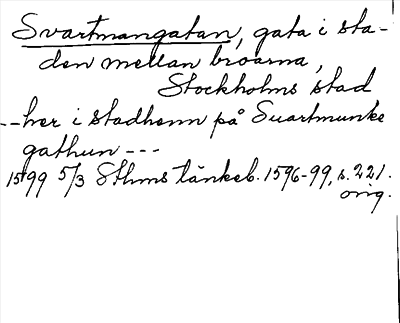 Svartmangatan, gata i sta-
den mellan broarna,
Stockholms stad
--her i stadhenn på Suartmunke
gathun ---
1599 5/3 Sthms tänkeb. 1596-99, s. 221.
orig.